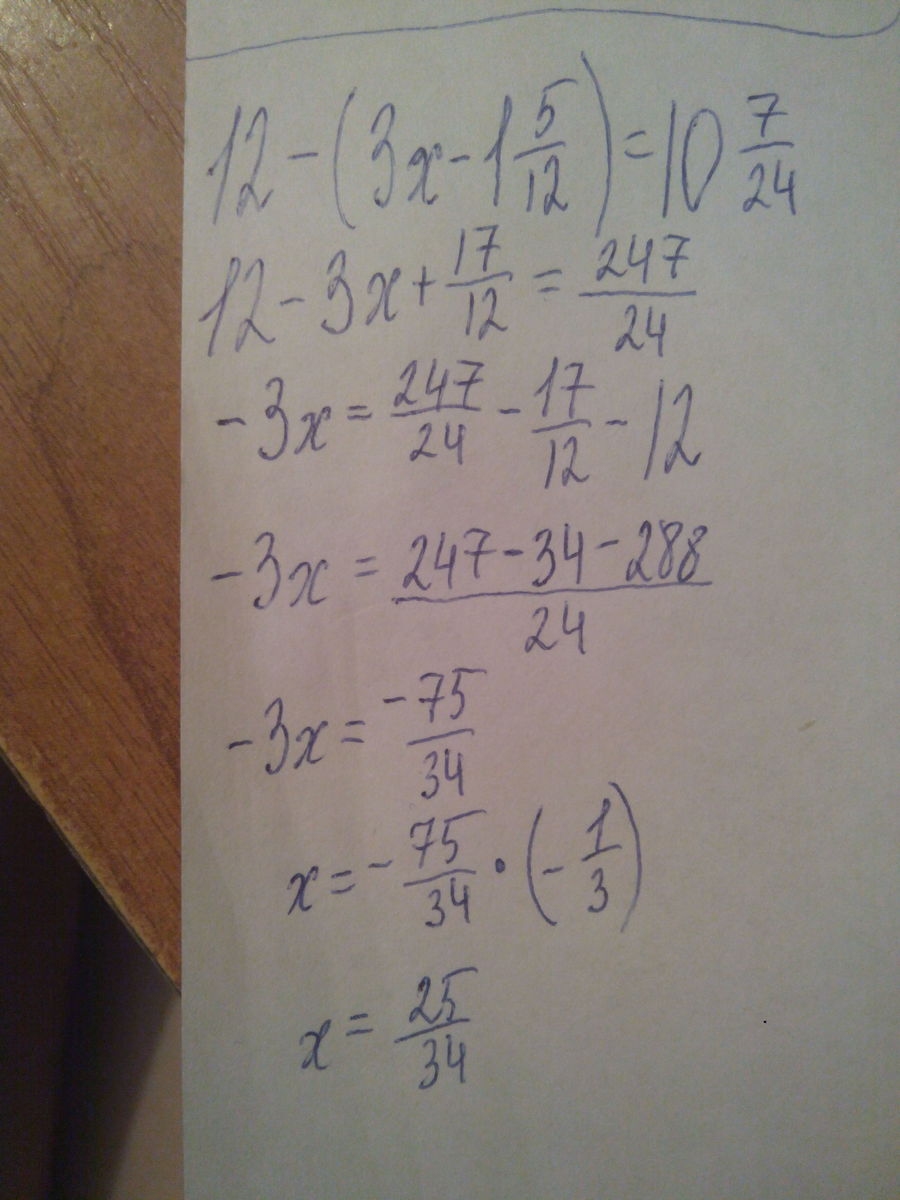 12 - (3x - 1 5/12) = 10 7/24
12 - 3x + 17/12 = 247/24
-3x = 247/24 - 17/12 - 12
-3x = (247 - 34 - 288)/24
-3x = -75/34
x = -75/34 · (-1/3)
x = 25/34